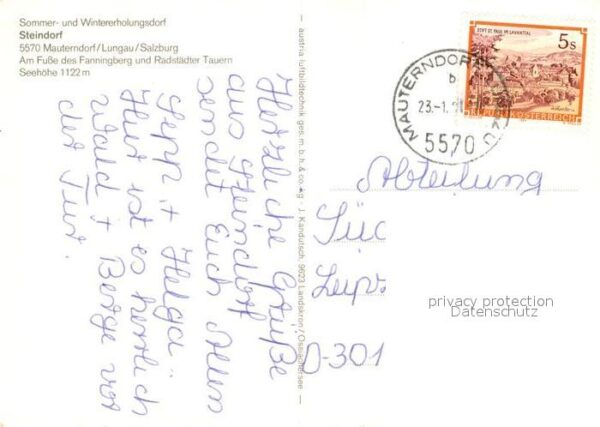 Sommer- und Wintererholungsdorf
Steindorf
5570 Mauterndorf/Lungau/Salzburg
Am Fuße des Fanningberg und Radstädter Tauern
Seehöhe 1122 m
Herzliche Grüße
aus Steindorf
sendet Euch Allen
Sepp + Helga
Hier ist es herrlich
Wald + Berge vor
der Tür.
austria luftbildtechnik ges. m. b. h. & co. kg - J. Kandutsch, 9623 Landskron/Ossiachersee
STIFT ST. PAUL IM LAVANTTAL
5 S
REPUBLIK ÖSTERREICH
MAUTERNDORF
b
23.-1.
5570
Abteilung
D-301
privacy protection
Datenschutz